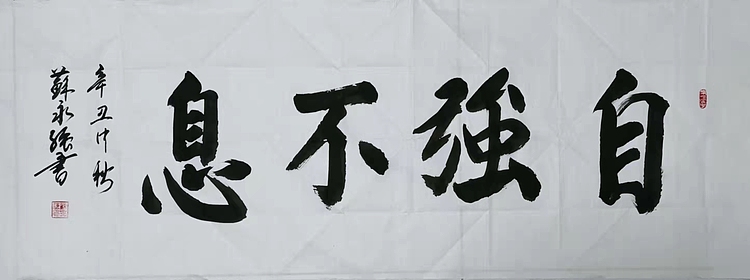 自強不息
辛丑仲秋
蘇永強書